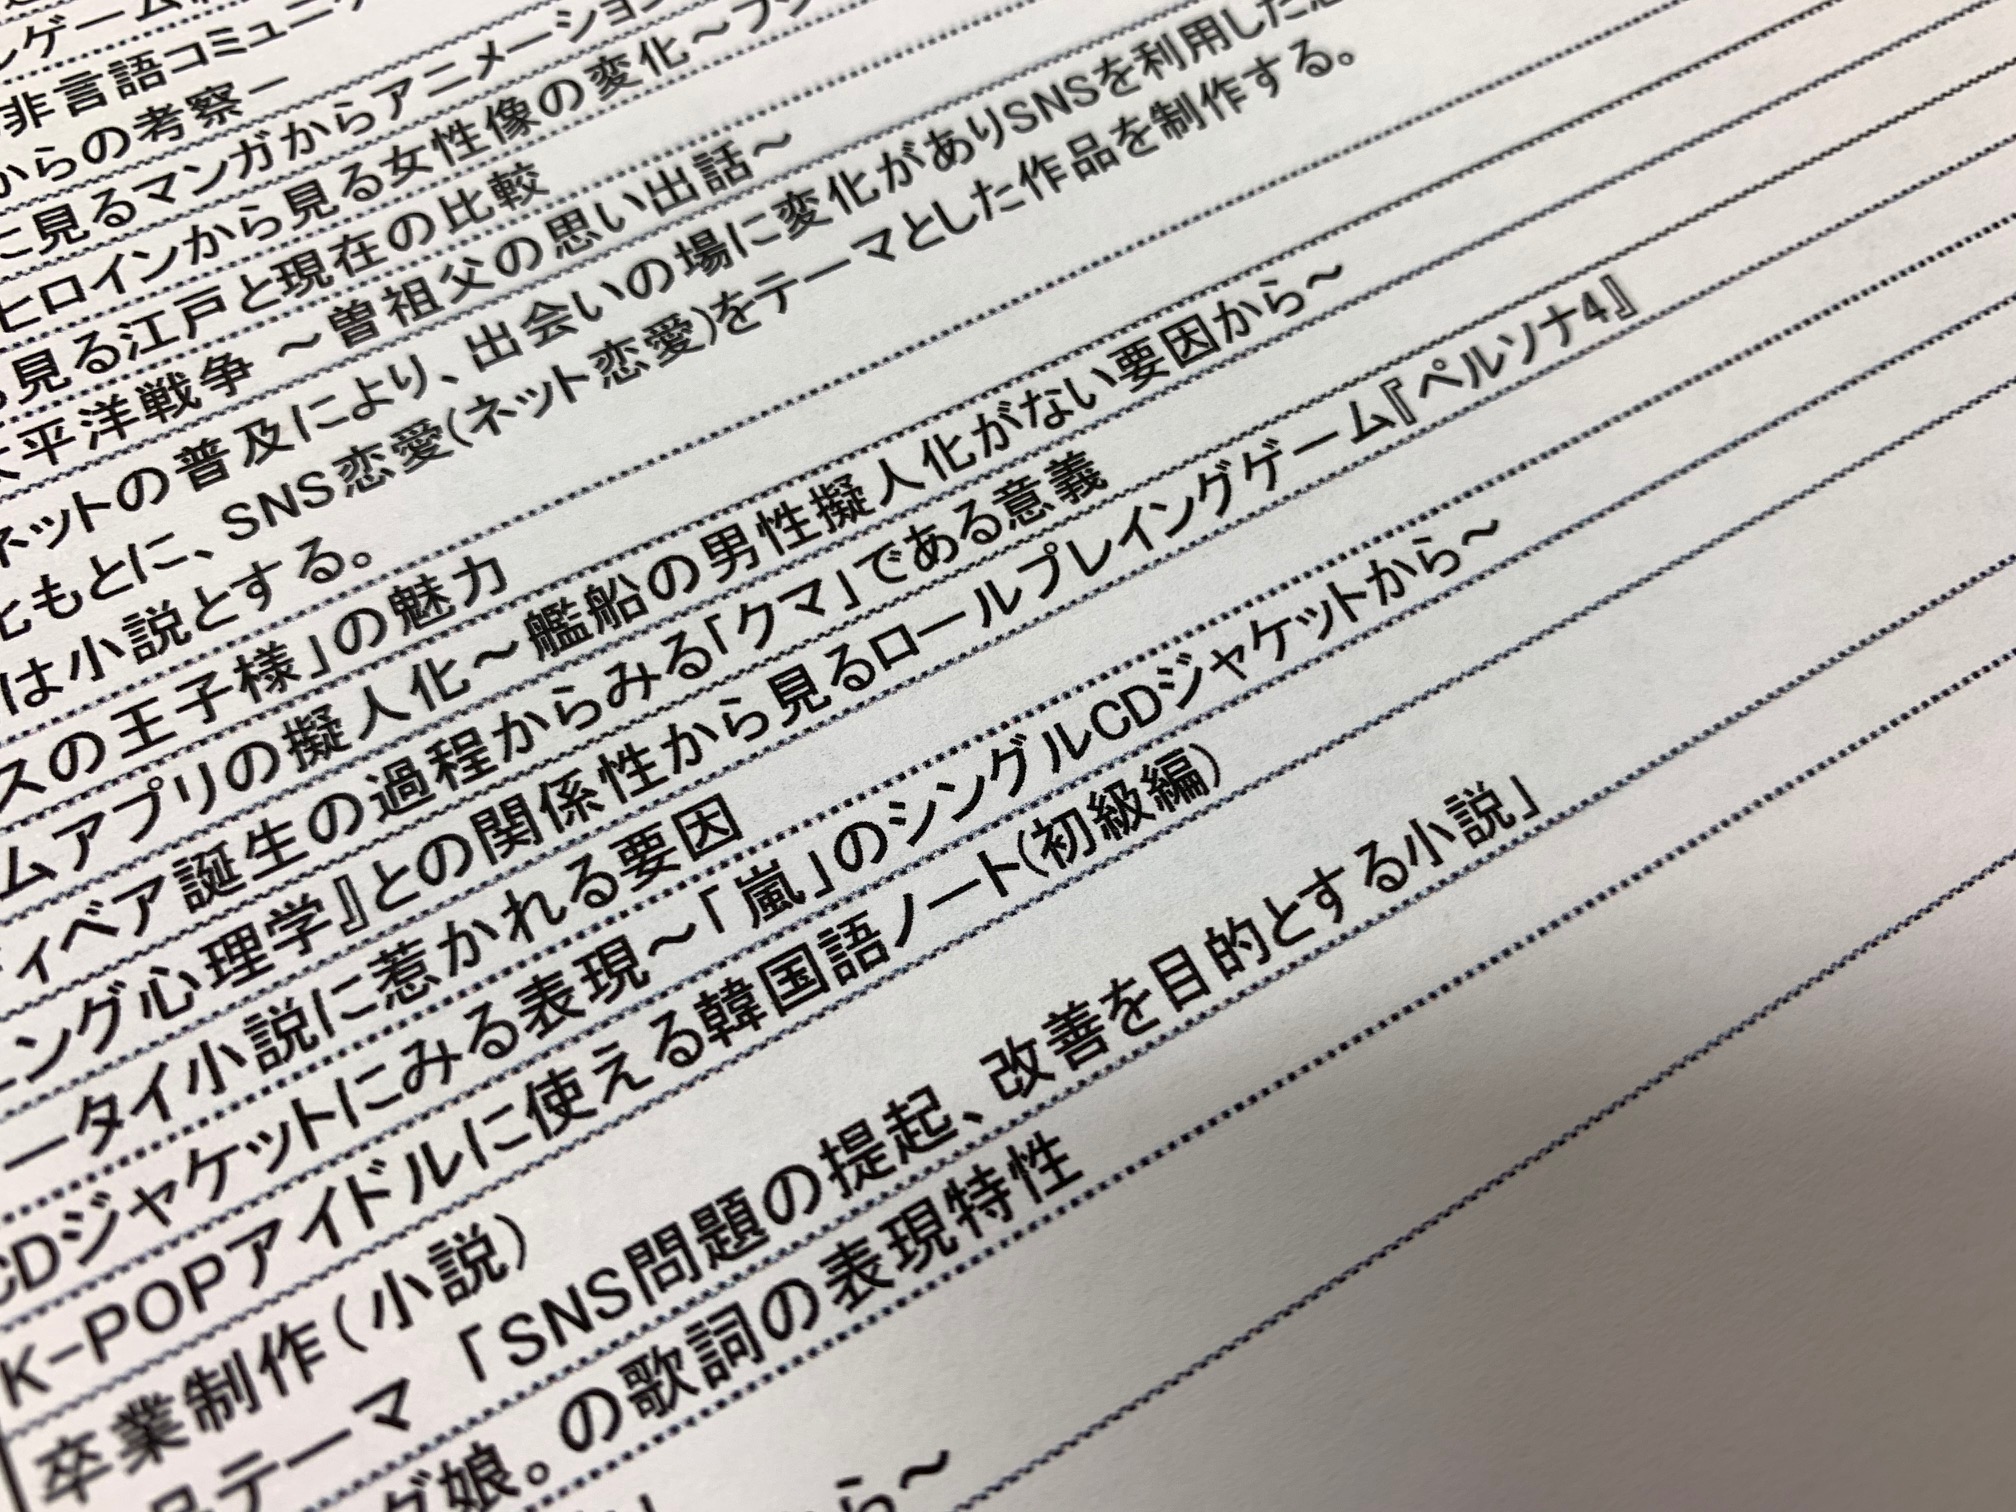 ンゲーム
非言語コミュニ
からの考察－
に見るマンガからアニメーション
ヒロインから見る女性像の変化～
見る江戸と現在の比較
太平洋戦争 ～曽祖父の思い出話～
ネットの普及により、出会いの場に変化がありSNSを利用した
ともとに、SNS恋愛(ネット恋愛)をテーマとした作品を制作する。
は小説とする。
スの王子様」の魅力
ムアプリの擬人化～艦船の男性擬人化がない要因から～
ィベア誕生の過程からみる「クマ」である意義
ング心理学』との関係性から見るロールプレイングゲーム『ペルソナ4』
ータイ小説に惹かれる要因
CDジャケットにみる表現～「嵐」のシングルCDジャケットから～
K-POPアイドルに使える韓国語ノート(初級編)
卒業制作(小説)
テーマ 「SNS問題の提起、改善を目的とする小説」
娘。の歌詞の表現特性
ら～